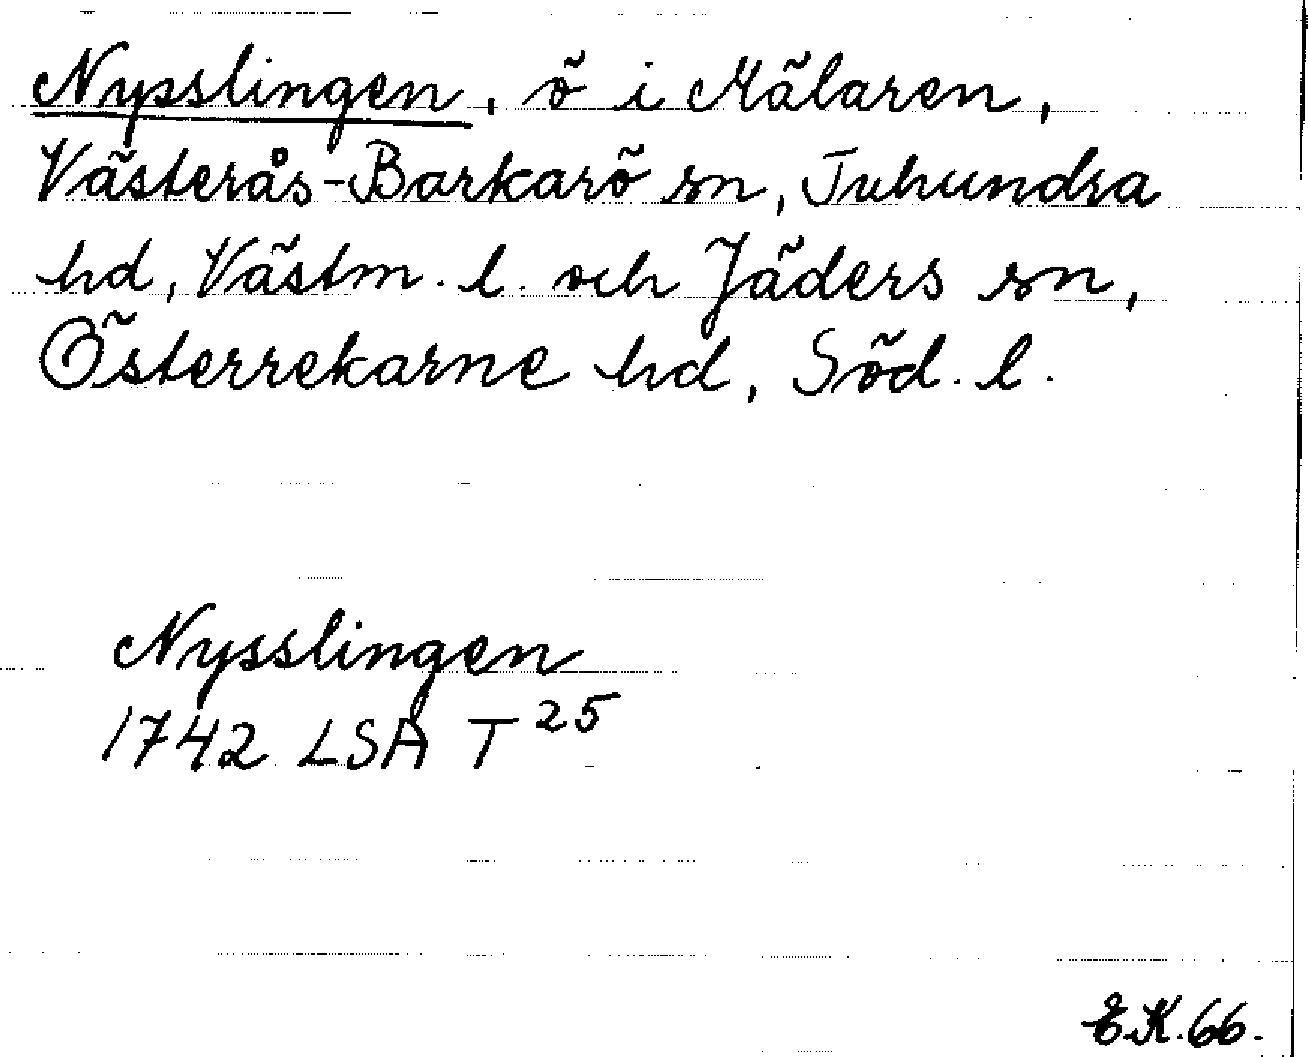 Nysslingen, ö i Mälaren,
Västerås-Barkarö sn, Tuhundra
hd, Västm. l. och Jäders sn,
Österrekarne hd, Söd. l.
Nysslingen
1742 LSA T 25
E.K. 66.